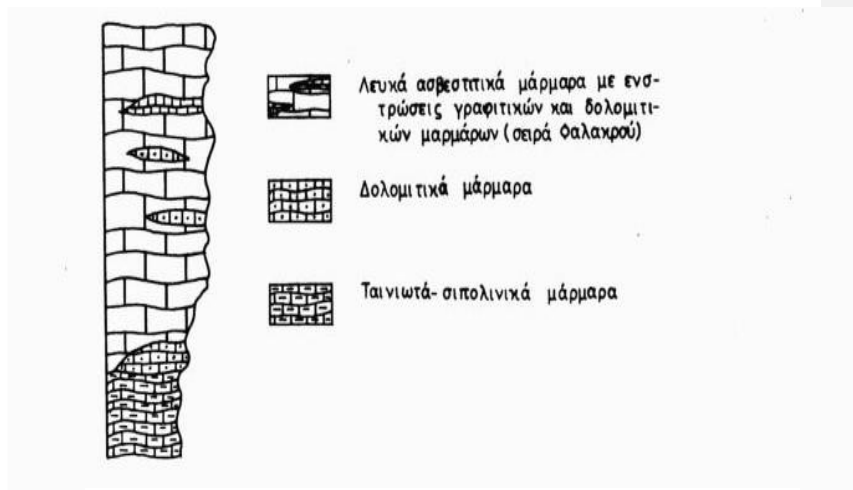 Λευκά ασβεστιτικά μάρμαρα με ενσ-
τρώσεις γραφιτικών και δολομιτι-
κών μαρμάρων (σειρά Φαλακρού)
Δολομιτικά μάρμαρα
Ταινιωτά-σιπολινικά μάρμαρα